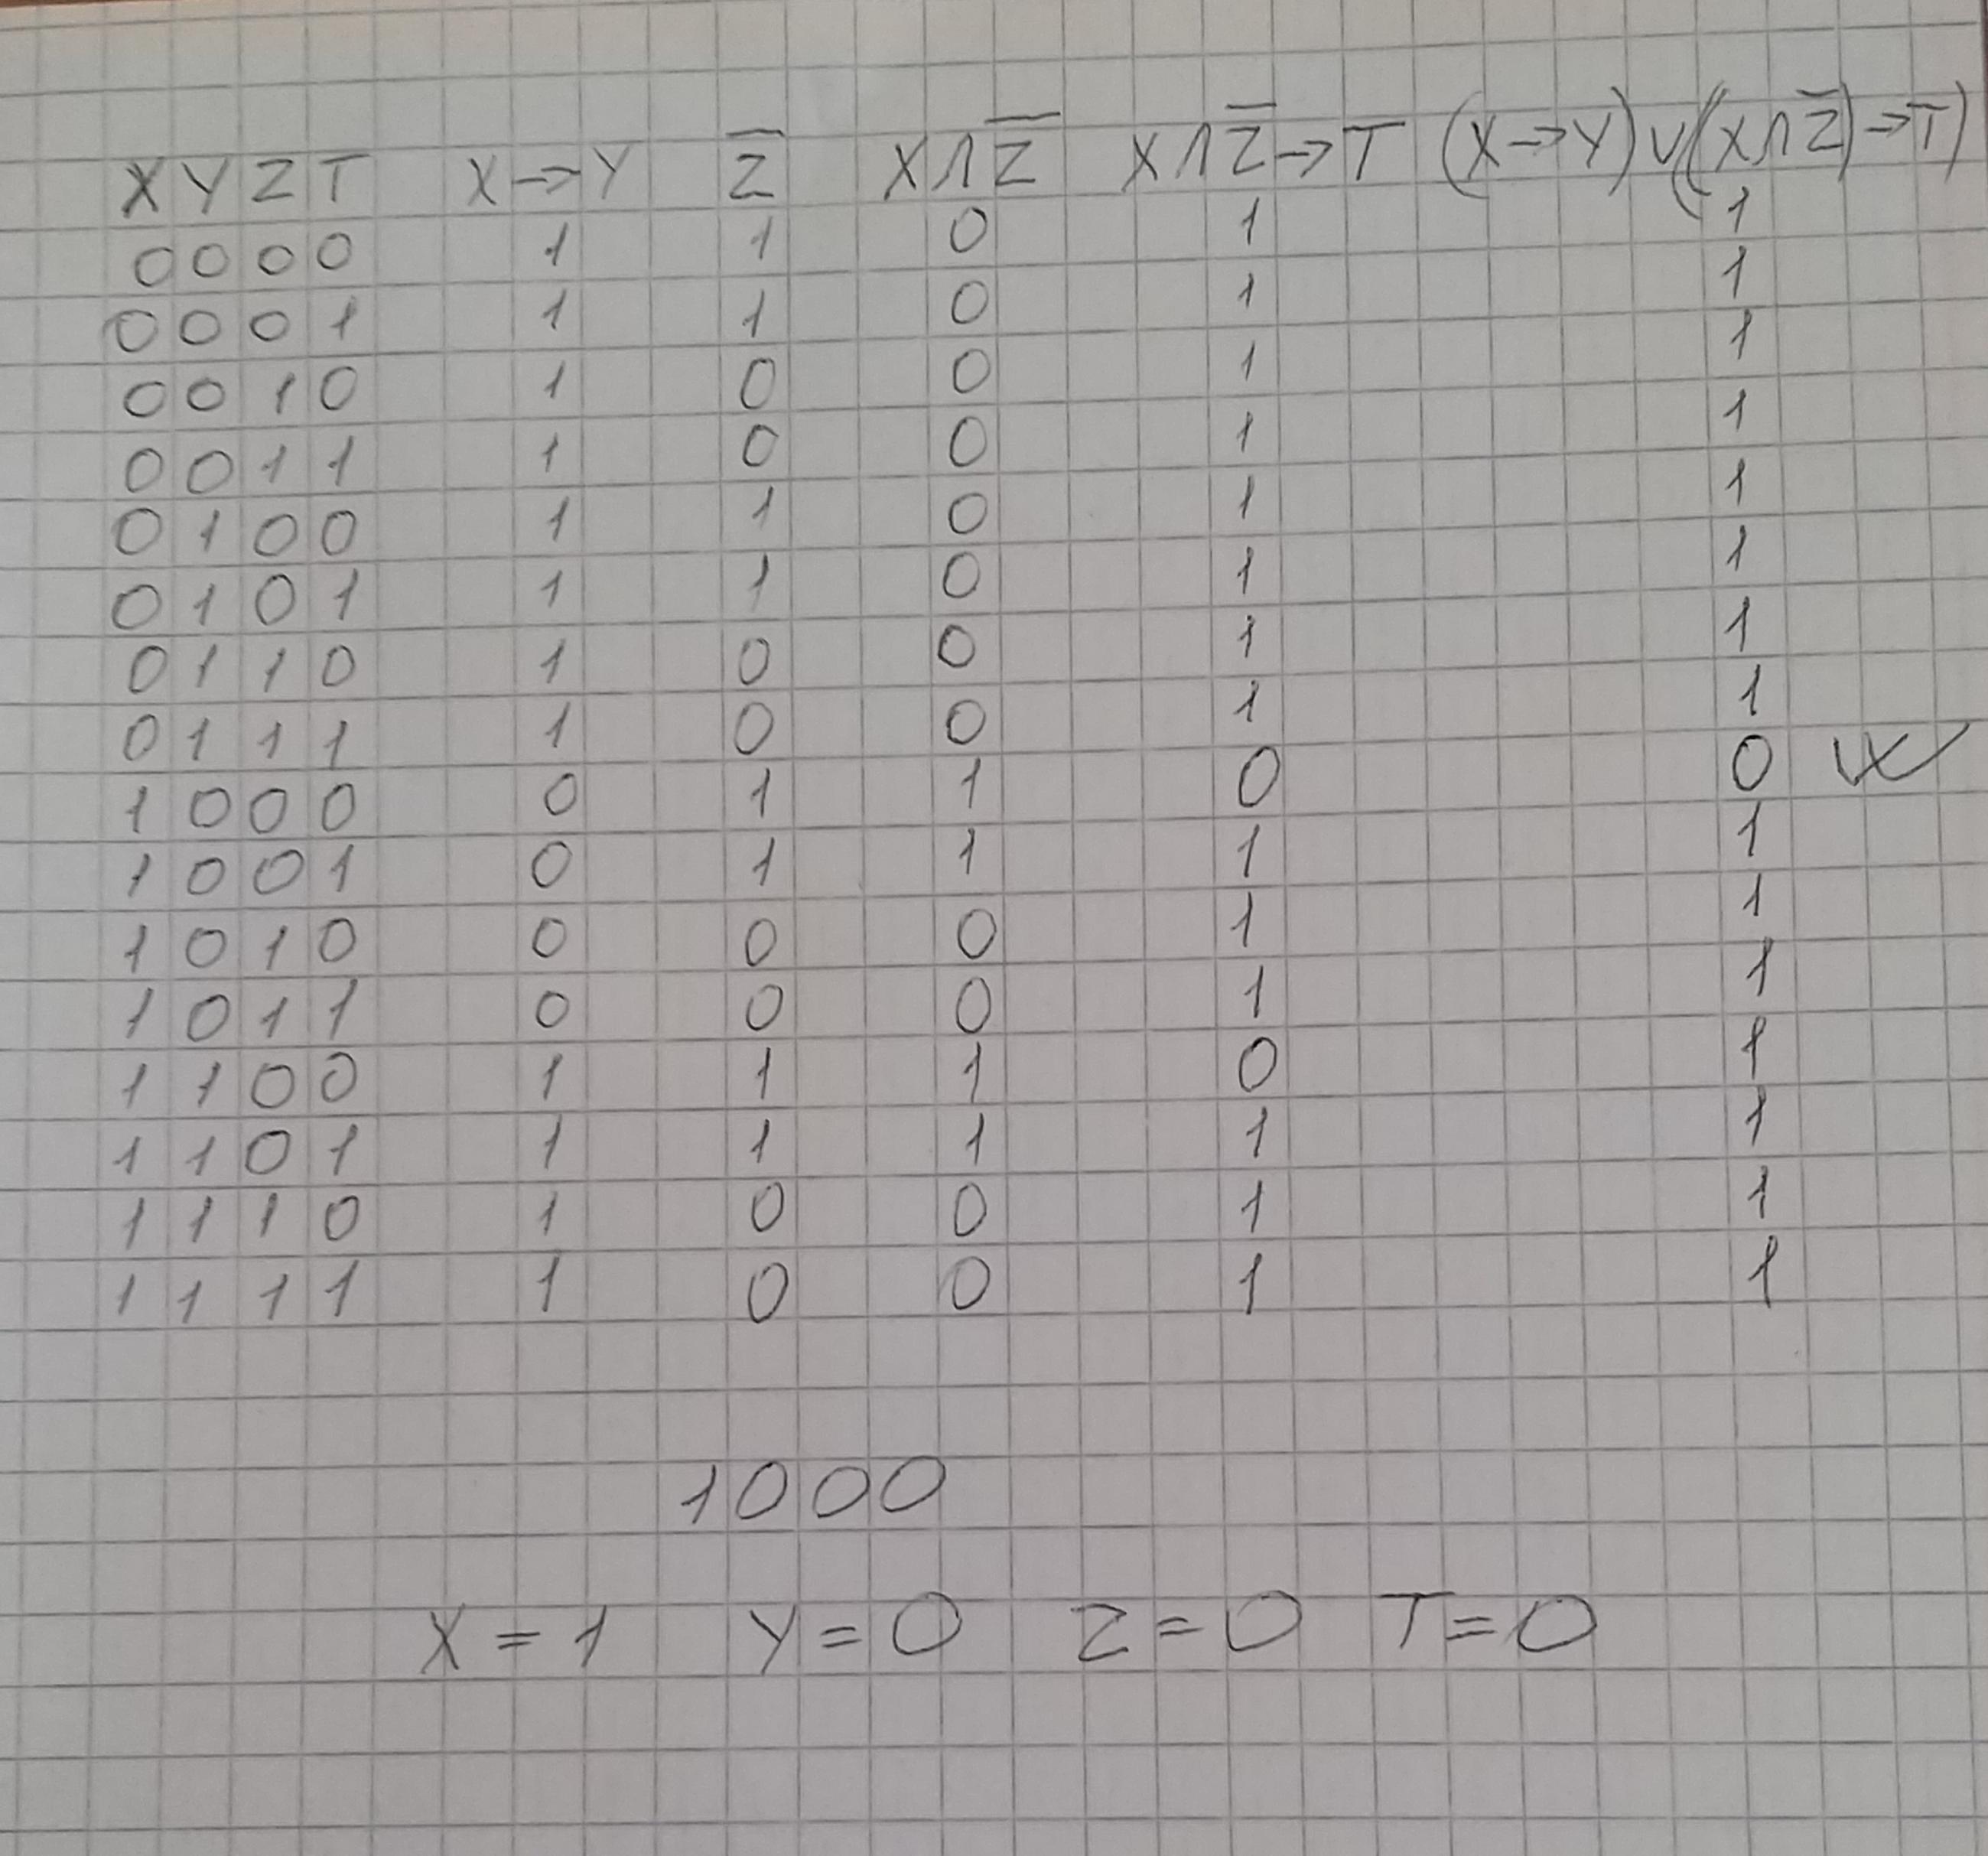 X Y Z T X→Y Z̅ X∧Z̅ X∧Z̅→T (X→Y)∨((X∧Z̅)→T)
0 0 0 0 1 1 0 1 1
0 0 0 1 1 1 0 1 1
0 0 1 0 1 0 0 1 1
0 0 1 1 1 0 0 1 1
0 1 0 0 1 1 0 1 1
0 1 0 1 1 1 0 1 1
0 1 1 0 1 0 0 1 1
0 1 1 1 1 0 0 1 1
1 0 0 0 0 1 1 0 0
1 0 0 1 0 1 1 1 1
1 0 1 0 0 0 0 1 1
1 0 1 1 0 0 0 1 1
1 1 0 0 1 1 1 0 1
1 1 0 1 1 1 1 1 1
1 1 1 0 1 0 0 1 1
1 1 1 1 1 0 0 1 1
1000
X = 1 Y = 0 Z = 0 T = 0